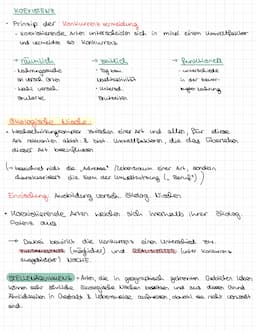 KOEXISTENZ
• Prinzip der Konkurrenzvermeidung
- koexistierende Arten unterscheiden sich in mind. einem Umweltfaktor
und vermeiden so Konkurrenz
→ räumlich → zeitlich → funktionell
• Nahrungssuche • Tag bzw. • Unterschiede
an versch. Orte Nachtaktivität in der
• versch. • Untersch.
Brutorte Brutzeiten
Ökologische Nische
= zwischen einer Art und allen für diese
Art relevanten abiot. & biot. Umweltfaktoren, die das Überleben
dieser Art beeinflussen
↳ bezeichnet nicht die „Adresse" / Lebensraum einer Art, sondern
die Form der Umweltnutzung („Beruf")
Einnischung: Ausbildung versch. ökolog. Nischen
• Koexistierende Arten weichen sich innerhalb ihrer ökolog.
Potenz aus
→ Dabei bewirkt die Konkurrenz einen Unterschied zw.
FUNDAMENTALER (möglicher) und REALISIERTER (unter Konkurrenz
ausgebildet) NISCHE
STELLENÄQUIVALENZ: Arten, die in geographisch getrennten Gebieten leben
können sehr ähnliche ökologische Nischen besetzen und aus diesem Grund
Ähnlichkeiten in Gestalt & Lebensweise aufweisen, obwohl sie nicht verwandt
sind.